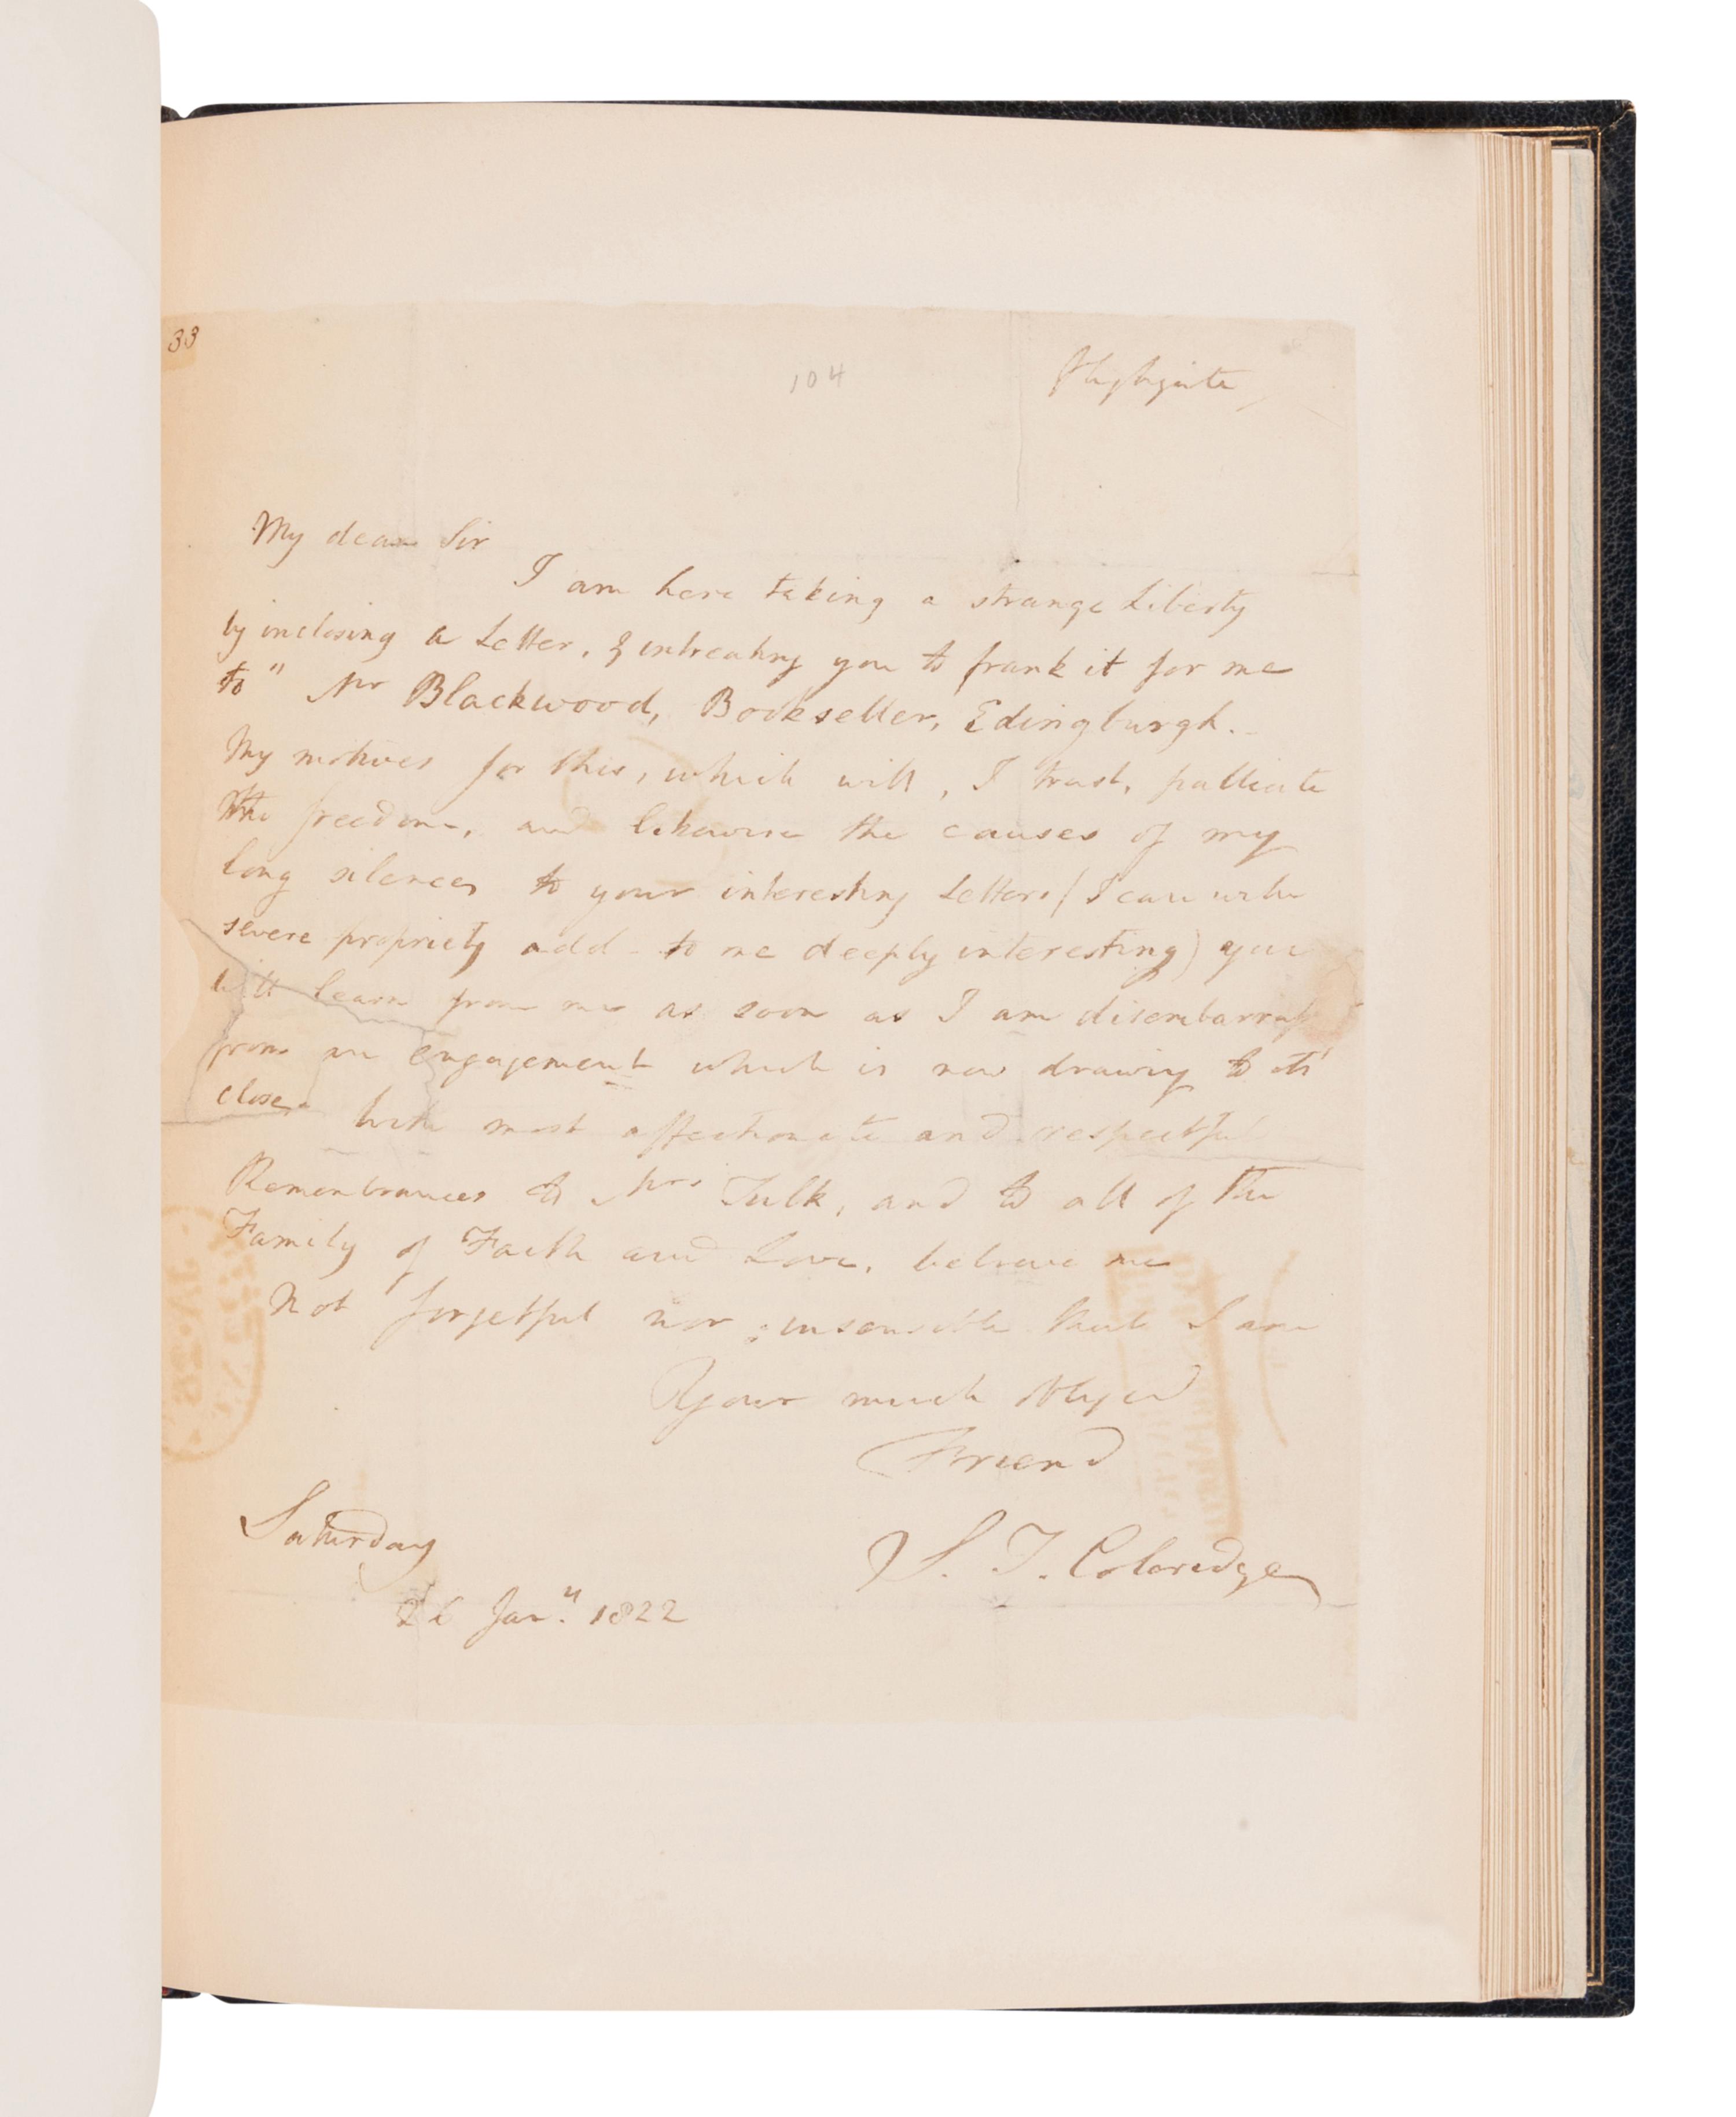 33
104
Highgate
My dear Sir
I am here taking a strange Liberty
by inclosing a Letter, & intreating you to frank it for me
to " Mr Blackwood, Bookseller, Edingburgh.
My motives for this, which will, I trust, palliate
the freedom, and likewise the causes of my
long silences to your interesting Letters (I can with
severe propriety add - to me deeply interesting) you
will learn from me as soon as I am disembarrass
from an engagement which is now drawing to its
close. With most affectionate and respectful
Remembrances to Mrs Tulk, and to all of the
Family of Faith and Love, believe me
not forgetful nor insensible that I am
Your much obliged
Friend
S. T. Coleridge
Saturday
26 Jany. 1822